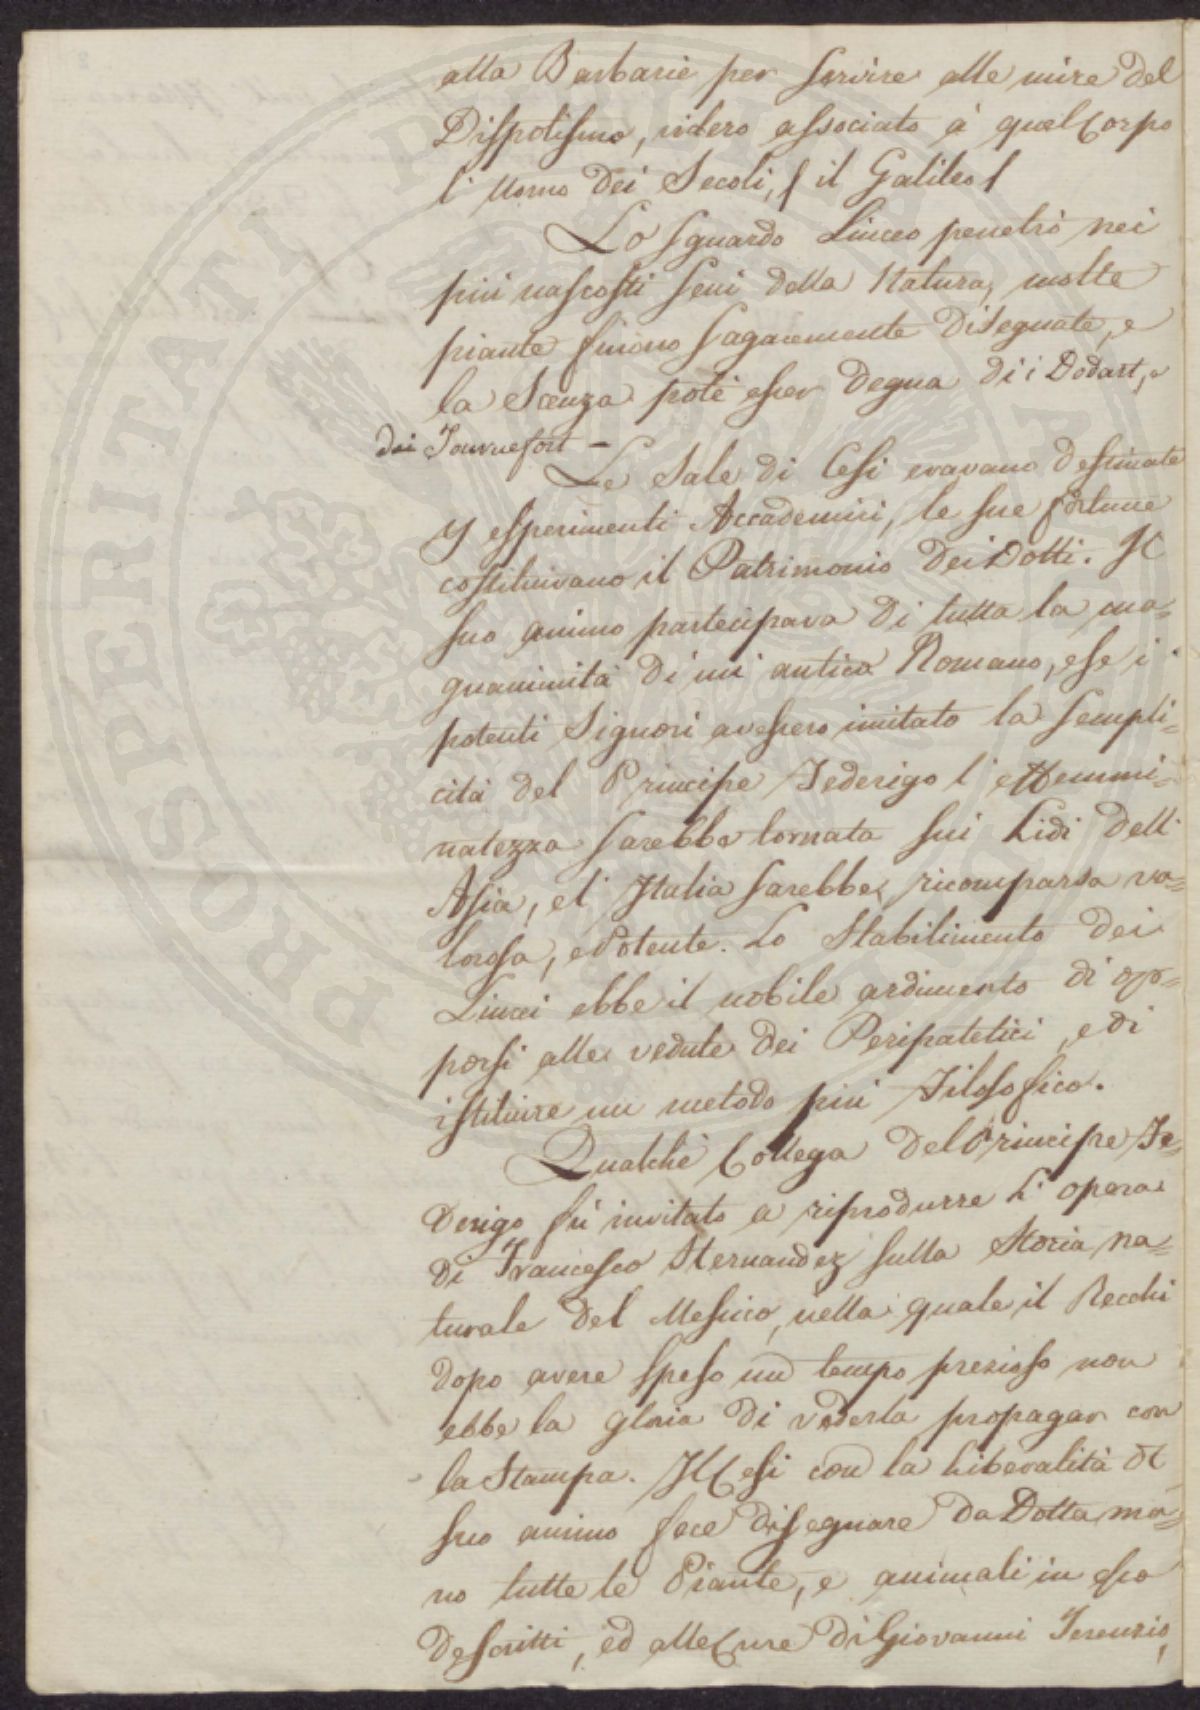 alla Barbarie per servire alle mire del
Dispotismo, videro associato à quel Corpo
l'Uomo dei Secoli, ( il Galileo (
Lo sguardo Linceo penetrò nei
più nascosti seni della Natura, molte
piante furono sagacemente disegnate, e
la Scenza potè esser degna di i Dodart, e
dei Tournefort -
Le Sale di Cesi eravano destinate
gl esperimenti Accademici, le sue fortune
costituivano il Patrimonio dei Dotti. Il
suo animo partecipava di tutta la ma=
gnanimità di un antico Romano, e se i
potenti Signori avessero imitato la sempli=
cità del Principe Federigo l'effemmi=
natezza sarebbe tornata sui Lidi dell'
Asia, e l'Italia sarebbe ricomparsa va=
lorosa, e Potente. Lo Stabilimento dei
Lincei ebbe il nobile ardimento di op=
porsi alle vedute dei Peripatetici, e di
istituire un metodo più Filosofico.
Qualche Collega del Principe Fe=
derigo fù invitato a riprodurre l'opera
di Francesco Hernandez sulla Storia na=
turale del Messico, nella quale il Recchi
dopo avere speso un tempo prezioso non
ebbe la gloria di vederla propagar con
la Stampa. Il Cesi con la liberalità del
suo animo fece disegnare da Dotta ma=
no tutte le Piante, e animali in esso
descritti, ed alle Cure di Giovanni Terenzio,
PROSPERITATI PUBLICAE AUGENDAE